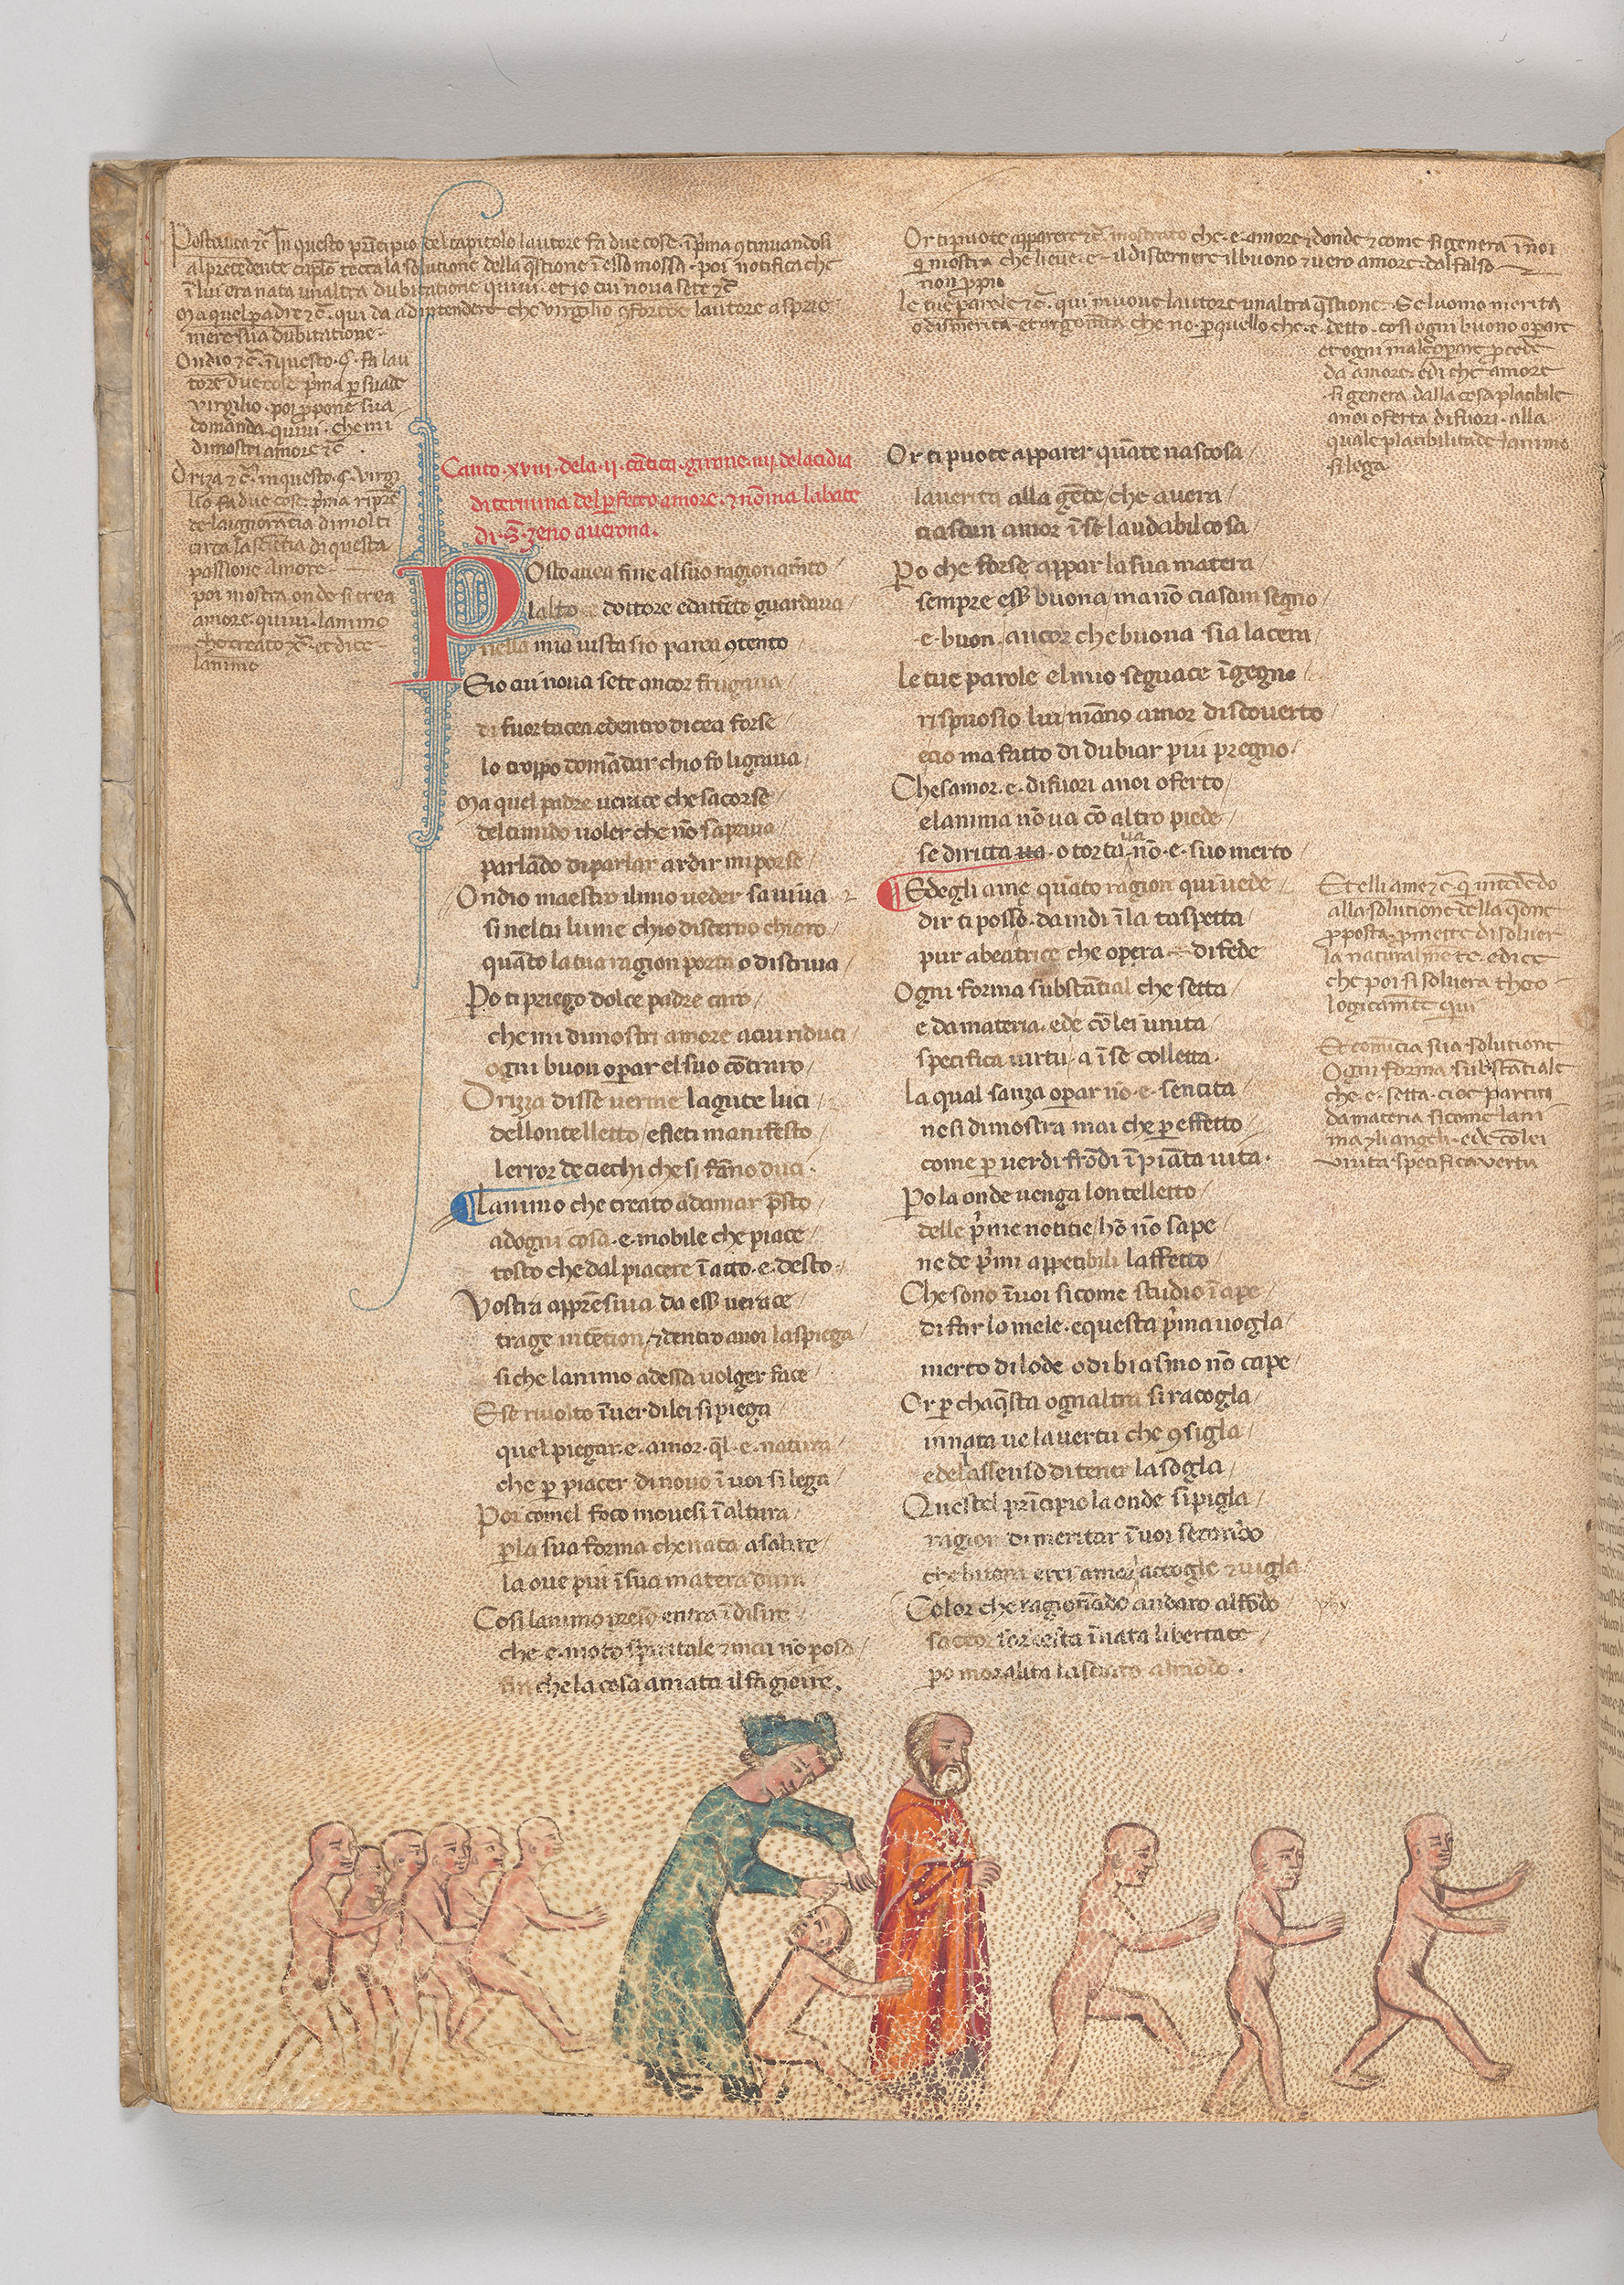 Postauea ⁊c̄ In questo prīcipio del capitolo lautore fa due cose · ī p̄ma ꝯtinuandosi
al precedente capło tocca la solutione della q̄stione ī esso mossa · poi notifica che
ī lui era nata unaltra dubitatione quiui · et io cui noua sete ⁊c̄
Ma quel padre ⁊c̄ · qui da ad intendere che virgilio ꝯforta lautore a spriē
mere sua dubitatione ·
Ondio ⁊c̄ · ī questo · fa lau
tore due cose p̄ma ꝑsuade
virgilio · poi ꝓpone sua
domanda quiui · che mi
dimostri amore ⁊c̄
Driza ⁊c̄ · in questo · virgi
lio fa due cose · p̄ma ripr̄e
de la ignorātia di molti
circa la sciētia di questa
passione amore
poi mostra onde si crea
amore · quiui · lanimo
che creato ⁊c̄ · et dice
lanimo
Canto · xviii · dela · ii · cātica · girone · iiij · delacidia
di termina del ꝑfetto amore · ⁊ nōma labate
di · S̄ · zeno auerona ·
Posto auea fine al suo ragionam̄to
lalto dottore ed attēto guardaua
nella mia uista sio parea ꝯtento
Et io cui noua sete ancor frugaua
di fuor tacea e dentro dicea forse
lo troppo domādar chio fo li graua
Ma quel padre uerace che sacorse
del timido uoler che nō sapriua
parlādo di parlar ardir mi porse
Ondio maestro il mio ueder sauiua
si nel tu lume chio discerno chiaro
quāto la tua ragion porta o discriua
Po ti priego dolce padre caro
che mi dimostri amore a cui riduci
ogni buon oꝑar el suo cōtraro
Drizza disse uerme lagute luci
dellontelletto e fieti manifesto
lerror de ciechi che si fāno duci ·
Lanimo che creato adamar p̄sto
adogni cosa · e · mobile che piace
tosto che dal piacere ī atto · e · desto ·
Vostra appr̄esiua da ess̄ uerace
trage intētion ⁊ dentro auoi la spiega
si che lanimo adessa uolger face
E se riuolto īuer di lei si piega
quel piegar · e · amor · q̄l · e · natura
che ꝑ piacer di nouo ī uoi si lega
Poi comel foco mouesi ī altura
ꝑ la sua forma che nata a salire
la oue piu ī sua matera dura
Cosi lanimo preso entra ī disire
che · e · moto sp̄ritale ⁊ mai nō posa
fin che la cosa amata il fa gioire ·
Or ti puote apparere ⁊c̄ · mostrato che · e · amore ⁊ donde ⁊ come si genera ī noi
q̄ mostra che lieue · e · il discernere il buono ⁊ uero amore · dal falso
non ꝓpio
Le tue parole ⁊c̄ · qui muoue lautore unaltra q̄stione · Se luomo merita
o dismerita · et argom̄ta che no · ꝑ quello che · e · detto · cosi ogni buono oꝑare
et ogni male oꝑare ꝓcede
da amore · ed i che amore
si genera dalla cosa placibile
anoi oferta di fuori · alla
quale placibilitade lanimo
si lega
Or ti puote apparer quāte nascosa
la uerita alla gēte che auera
ciascun amor ī se laudabil cosa
Po che forse appar la sua matera
sempre ess̄ buona ma nō ciascun segno
e · buon · ancor che buona sia la cera
Le tue parole el mio seguace īgegno
rispuosio lui māno amor discouerto
e cio ma fatto di dubiar piu pregno
Che samor · e · di fuori anoi oferto
e lanima nō ua cō altro piede
se diritta ua · o torta ua nō · e · suo merto
Ed egli ame quāto ragion qui uede
dir ti posso · da indi ī la taspetta
pur abeatrice che opera di fede
Ogni forma substātial che setta
e da materia · ed e cō lei unita
specifica uirtu a ī se colletta ·
La qual sanza oꝑar nō · e · sentita
ne si dimostra mai che ꝑ effetto
come ꝑ uerdi frōdi ī piāta uita ·
Po la onde uenga lontelletto
delle p̄me notitie hō nō sape
ne de p̄mi appetibili laffetto
Che sono ī uoi si come studio ī ape
di far lo mele · e questa p̄ma uogla
merto di lode o di biasmo nō cape
Or ꝑ cha q̄sta ognaltra si racogla
innata ue la uertu che ꝯsigla
e de lassenso di tener la sogla
Questel prīcipio la onde si pigla
ragion di meritar ī uoi secondo
che buoni e rei amor accogle ⁊ uigla
Color che ragionādo andaro al fōdo
saccor sor desta īnata libertate
po moralita lasciaro al mōdo ·
Et elli ame ⁊c̄ q̄ intēdēdo
alla solutione della q̄one
ꝓposta · ꝓmette di soluer
la naturalmēte · e dice
che poi si soluera theo
logicam̄te qui
Et comīcia sua solutione
Ogni forma substātiale
che · e · setta · cioe partita
da materia si come lani
ma ⁊ li angeli · ed e cō lei
unita specifica vertu